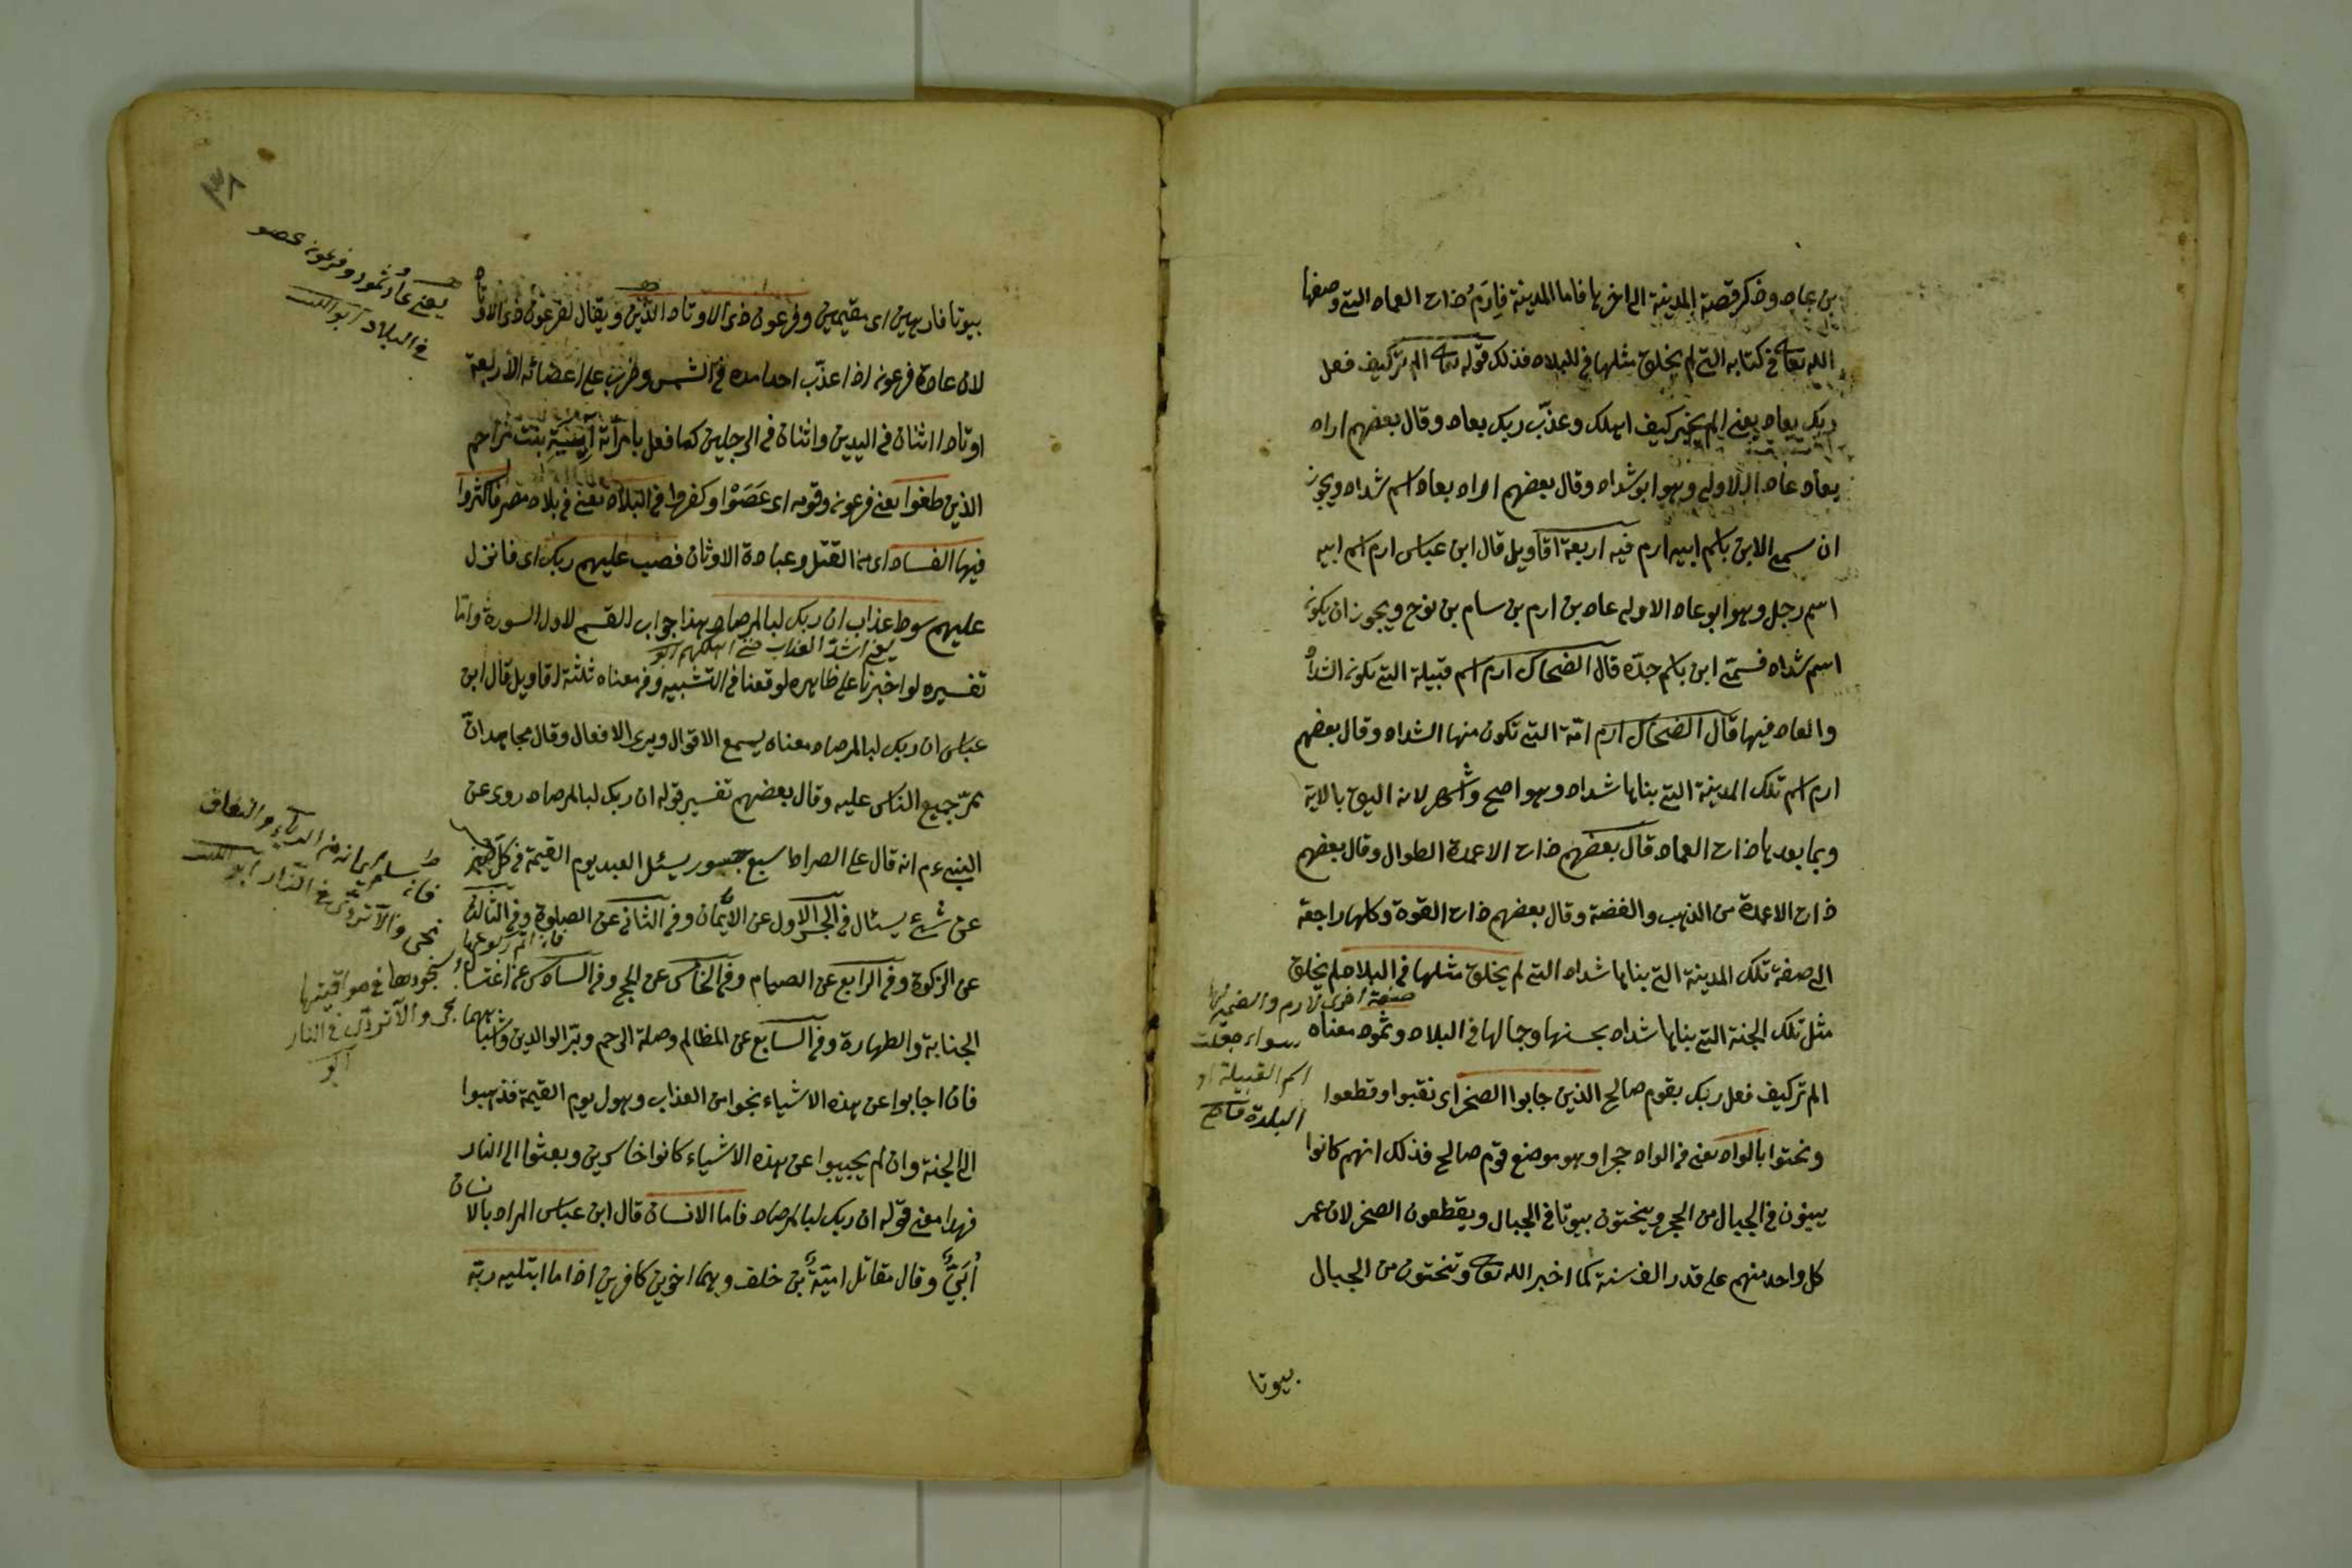 بن عاد وذكر قصة المدينة الى اخرها فاما المدينة فارم ذات العماد التى وصفها
الله تعالى فى كتابه التى لم يخلق مثلها فى البلاد فذلك قوله تعالى الم تر كيف فعل
ربك بعاد يعنى الم يخبر كيف اهلك وعذّب ربك بعاد وقال بعضهم اراد
بعاد عاد الاولى وهو ابو شداد وقال بعضهم اراد بعاد اسم شداد ويجوز
ان سمى الابن باسم ابيه ارم فيه اربعة اقاويل قال ابن عباس ارم اسم ابيه
اسم رجل وهو ابو عاد الاولى عاد بن ارم بن سام بن نوح ويجوز ان يكون
اسم شداد فسمّى ابن باسم جدّه قال الضحاك ارم اسم قبيلة التى يكون الشداد
والعاد فيها قال الضحاك ارم امّة التى تكون منها الشداد وقال بعضهم
ارم اسم تلك المدينة التى بناها شداد وهو اصح واشهر لانه اليق بالاية
وبما بعدها ذات العماد قال بعضهم ذات الاعمدة الطوال وقال بعضهم
ذات الاعمدة من الذهب والفضة وقال بعضهم ذات القوة وكلها راجعة
الى صفة تلك المدينة التى بناها شداد التى لم يخلق مثلها فى البلاد لم يخلق
مثل تلك الجنة التى بناها شداد بحسنها وجمالها فى البلاد وثمود معناه
صفة اخرى لارم والضمير لها
سواء جعلت
اسم القبيلة او
البلدة قاضى
الم تر كيف فعل ربك بقوم صالح الذين جابوا الصخر اى نقبوا وقطعوا
ونحتوا بالواد يعنى فى الواد حجرا وهو موضع قوم صالح فذلك انهم كانوا
يبنون فى الجبال من الحجر وينحتون بيوتا فى الجبال ويقطعون الصخر لان عمر
كل واحد منهم على قدر الف سنة كما اخبر الله تعالى وتنحتون من الجبال
بيوتا
٣٨
يعنى عاد وثمود وفرعون عصو
فى البلاد ابو الليث
بيوتا فارهين اى مقيمين وفرعون ذى الاوتاد الذين ويقال لفرعون ذى الاوتاد
لان عادة فرعون اذا عذّب احدا مده فى الشمس وضرب على اعضائه الاربعة
اوتادا اثنان فى اليدين واثنان فى الرجلين كما فعل بامرأته آسية بنت مزاحم
الذين طغوا يعنى فرعون وقومه اى عصوا وكفروا فى البلاد يعنى فى بلاد مصر فاكثروا
فيها الفساد اى من القتل وعبادة الاوثان فصب عليهم ربك اى فانزل
عليهم سوط عذاب ان ربك لبالمرصاد هذا جواب القسم لاول السورة واما
يعنى اشدّ العذاب حتى اهلكهم ابو
تفسيره لو اخبرنا على ظاهره لوقعنا فى التشبيه وفى معناه ثلثة اقاويل قال ابن
عباس ان ربك لبالمرصاد معناه يسمع الاقوال ويرى الافعال وقال مجاهد انّ
ممرّ جميع الناس عليه وقال بعضهم تفسير قوله ان ربك لبالمرصاد روى عن
النبى ء م انه قال على الصراط سبع جسور يسئل العبد يوم القيمة فى كل جسر
عن شئ يسئال فى الجسر الاول عن الايمان وفى الثانى عن الصلوة وفى الثالث
عن الزكوة وفى الرابع عن الصيام وفى الخامس عن الحج وفى السادس عن اغتسال
الجنابة والطهارة وفى السابع عن المظالم وصلة الرحم وبرّ الوالدين
فان اجابوا عن هذه الاشياء نجوا من العذاب وهول يوم القيمة فذهبوا
الى الجنة وان لم يجيبوا عن هذه الاشياء كانوا خاسرين وبعثوا الى النار
فهذا معنى قوله ان ربك لبالمرصاد فاما الانسان قال ابن عباس المراد بالانسان
أبىّ وقال مقاتل اميّة بن خلف وهما اخوين كافرين اذا ما ابتليه ربّه
فان سلم ايمانه من الرياء والنفاق
نجى والا تردّى فى النار ابو الليث
فان اتم ركوعها
وسجودها فى مواقيتها
نجى والا تردّى فى النار
ابو